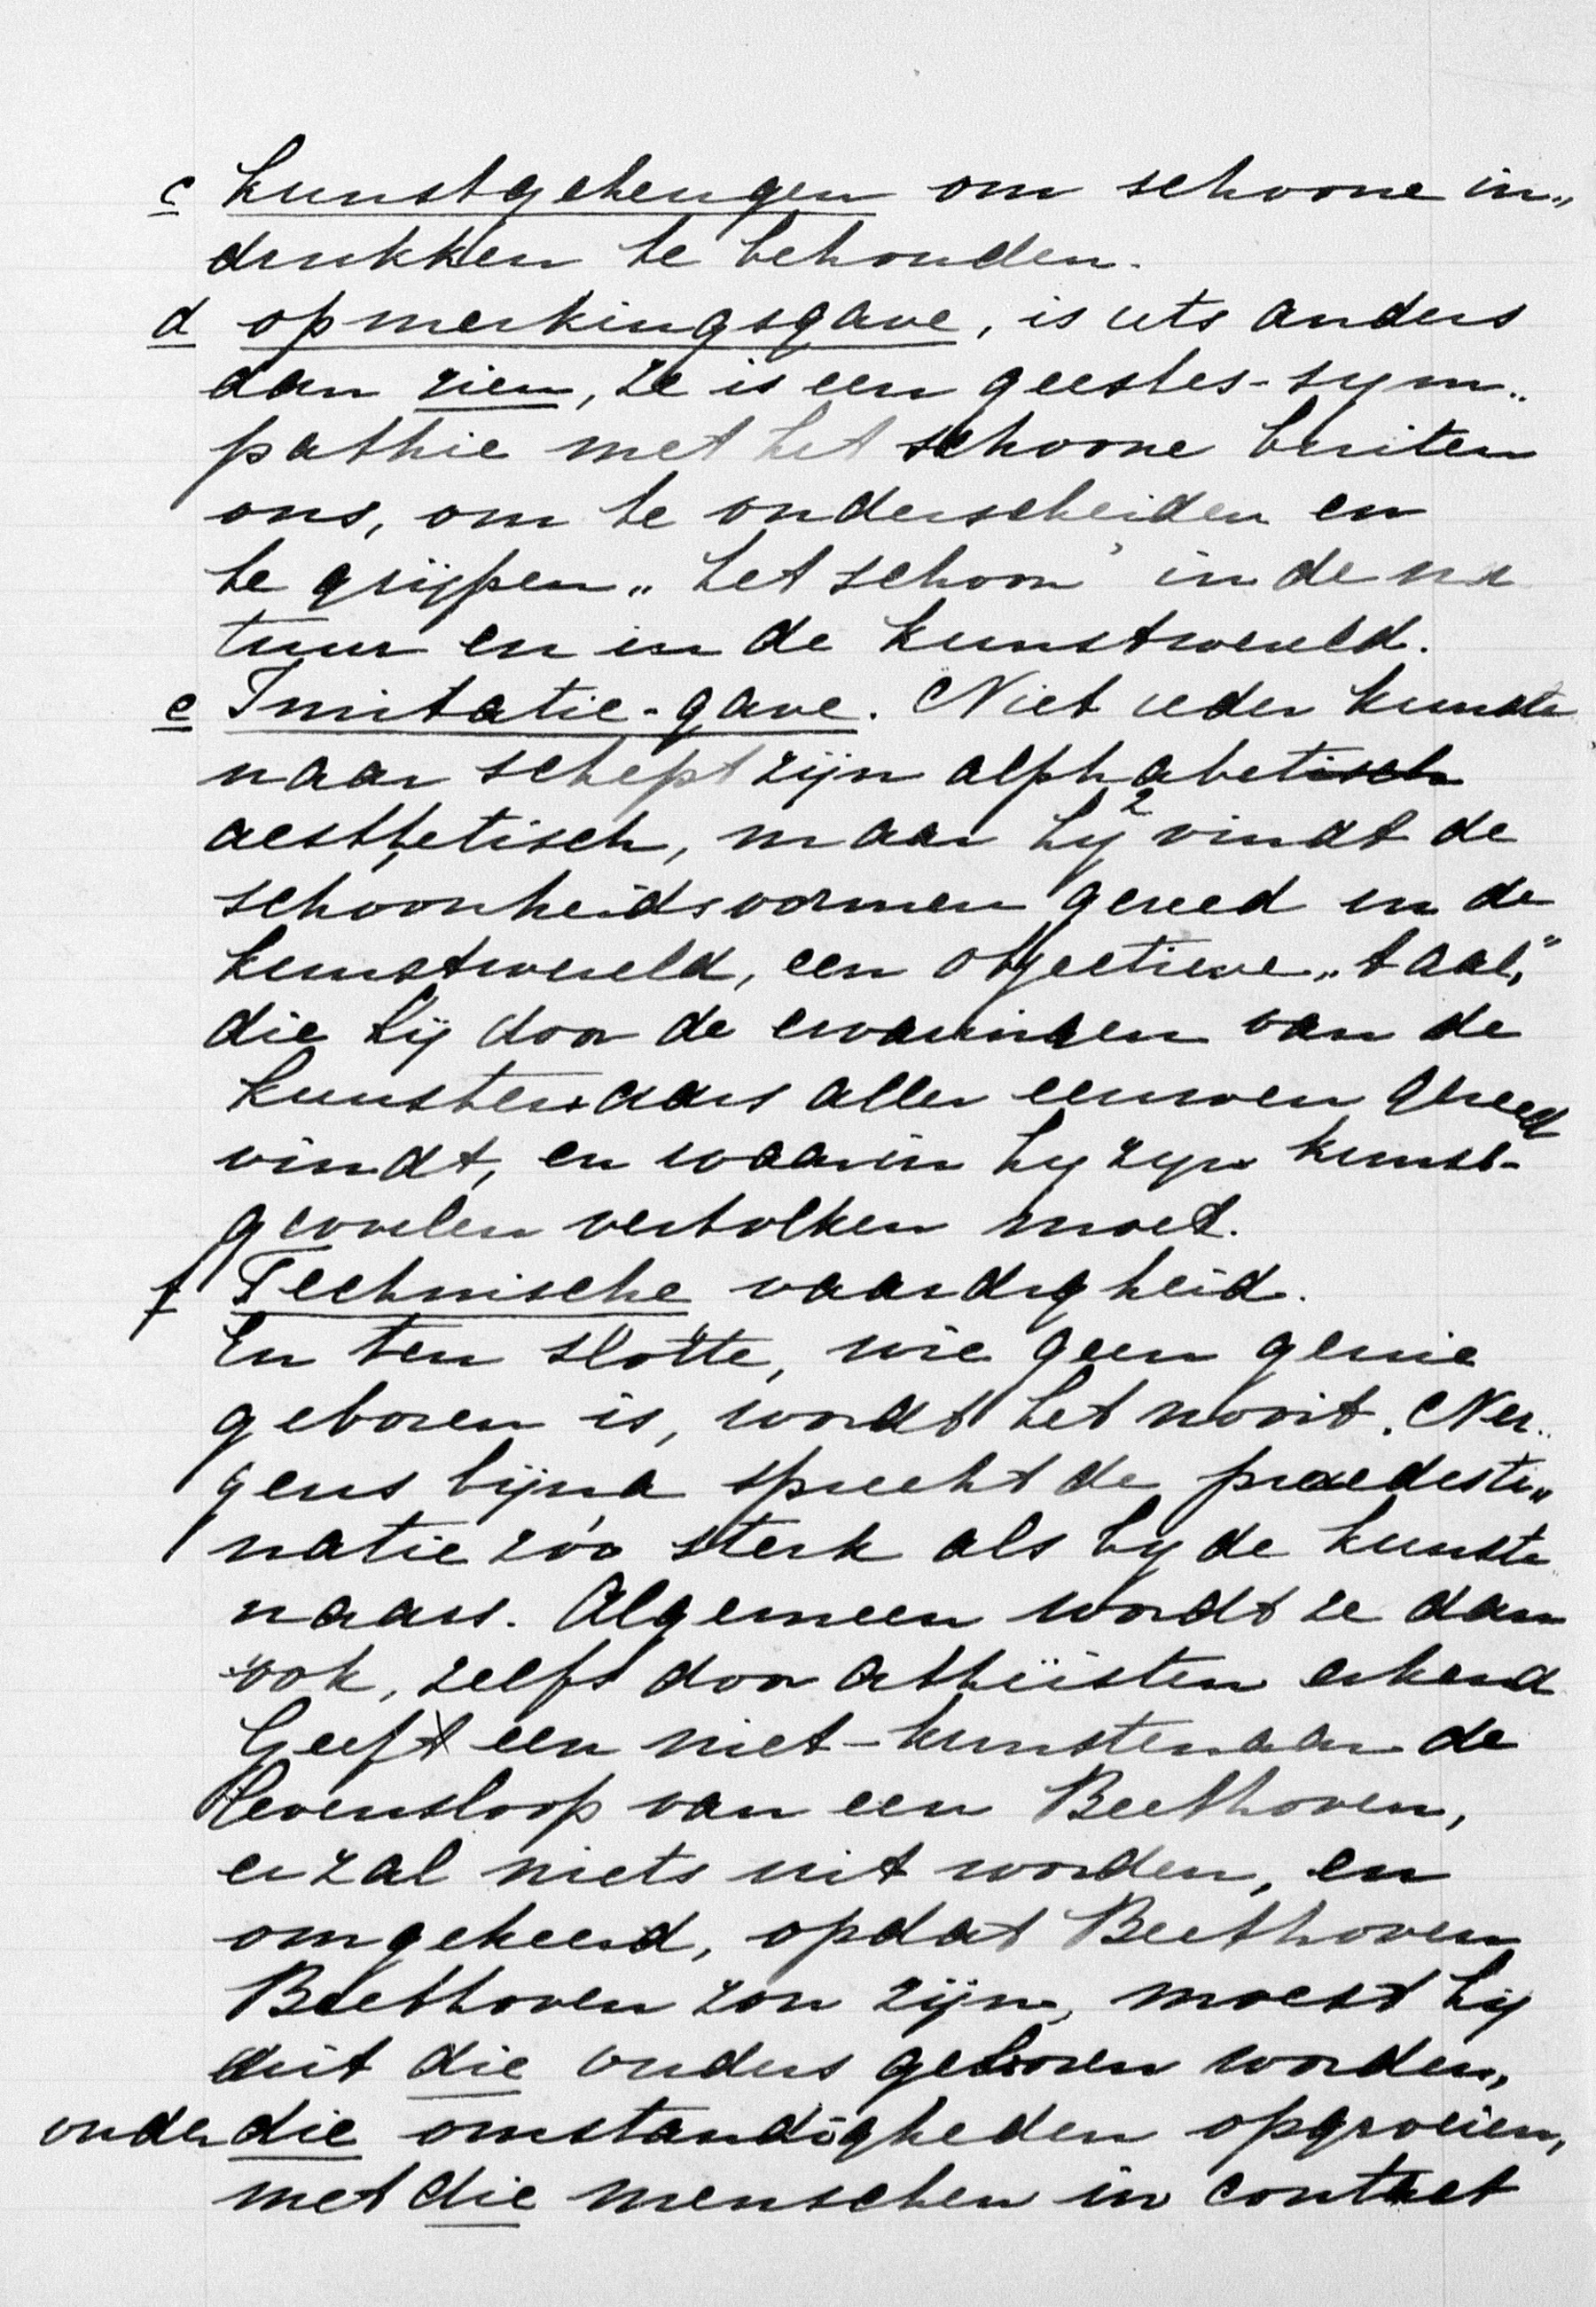 c kunstgeheugen om schoone in„
drukken te behouden.
d opmerkingsgave, is iets anders
dan zien, ze is een geestes-sym„
pathie met het schoone buiten
ons, om te onderscheiden en
te grijpen „het schoon" in de na
tuur en in de kunstwereld.
e Imitatie-gave. Niet ieder kunste
naar schept zijn alphabetisch
aesthetisch, maar hij vindt de
schoonheidsvormen gereed in de
kunstwereld, een objectieve „taal,"
die hij door de ervaringen van de
kunstenaars aller eeuwen gereed
vindt, en waarin hij zijn kunst-
gevoelen vertolken moet.
f Technische vaardigheid.
En ten slotte, wie geen genie
geboren is, wordt het nooit. Ner„
gens bijna spreekt de praedesti„
natie zóó sterk als bij de kunste
naars. Algemeen wordt ze dan
ook, zelfs door atheïsten erkend
Geeft een niet-kunstenaar de
levensloop van een Beethoven,
er zal niets uit worden, en
omgekeerd, opdat Beethoven
Beethoven zou zijn, moest hij
uit die ouders geboren worden,
onder die omstandigheden opgroeien,
met die menschen in contact